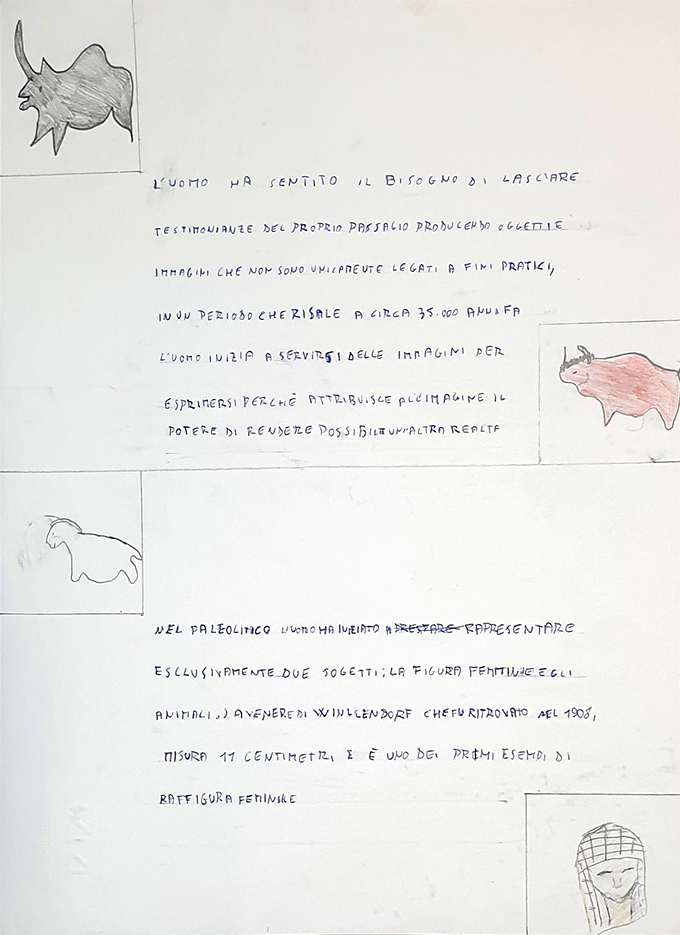 L'UOMO HA SENTITO IL BISOGNO DI LASCIARE
TESTIMONIANZE DEL PROPRIO PASSAGIO PRODUCENDO OGGETTI E
IMMAGINI CHE NON SONO UNICAMENTE LEGATI A FINI PRATICI,
IN UN PERIODO CHE RISALE A CIRCA 35.000 ANNI FA
L'UOMO INIZIA A SERVIRSI DELLE IMMAGINI PER
ESPRIMERSI PERCHÈ ATTRIBUISCE ALL'IMAGINE IL
POTERE DI RENDERE POSSIBILE UN'ALTRA REALTA
NEL PALEOLITICO L'UOMO HA INIZIATO A RAPRESENTARE
ESCLUSIVAMENTE DUE SOGETTI; LA FIGURA FEMMINILE E GLI
ANIMALI, VENERE DI WINLLENDORF CHE FU RITROVATO NEL 1908,
MISURA 11 CENTIMETRI E È UNO DEI PRIMI ESEMPI DI
RAFFIGURA FEMINILE